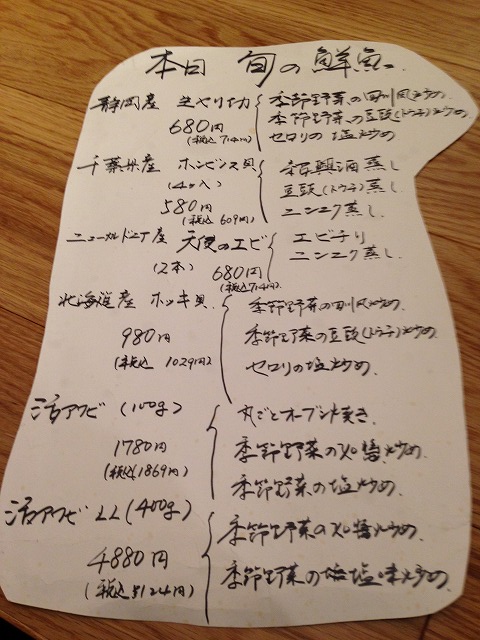 本日 旬の鮮魚
静岡産 生やりイカ
季節野菜の四川風炒め
季節野菜の豆豉(トウチ)炒め
セロリの塩炒め
680円
(税込 714円)
千葉県産 ホンビノス貝
(4ヶ入)
580円
(税込 609円)
紹興酒蒸し
豆豉(トウチ)蒸し
ニンニク蒸し
ニューカレドニア産 天使のエビ
(2本) 680円
(税込714円)
エビチリ
ニンニク蒸し
北海道産 ホッキ貝
980円
(税込 1029円)
季節野菜の四川風炒め
季節野菜の豆豉(トウチ)炒め
セロリの塩炒め
活アワビ (100g)
1780円
(税込1869円)
丸ごとオーブン焼き
季節野菜のXO醤炒め
季節野菜の塩炒め
活アワビ LL(400g)
4880円
(税込 5124円)
季節野菜のXO醤炒め
季節野菜の塩味炒め